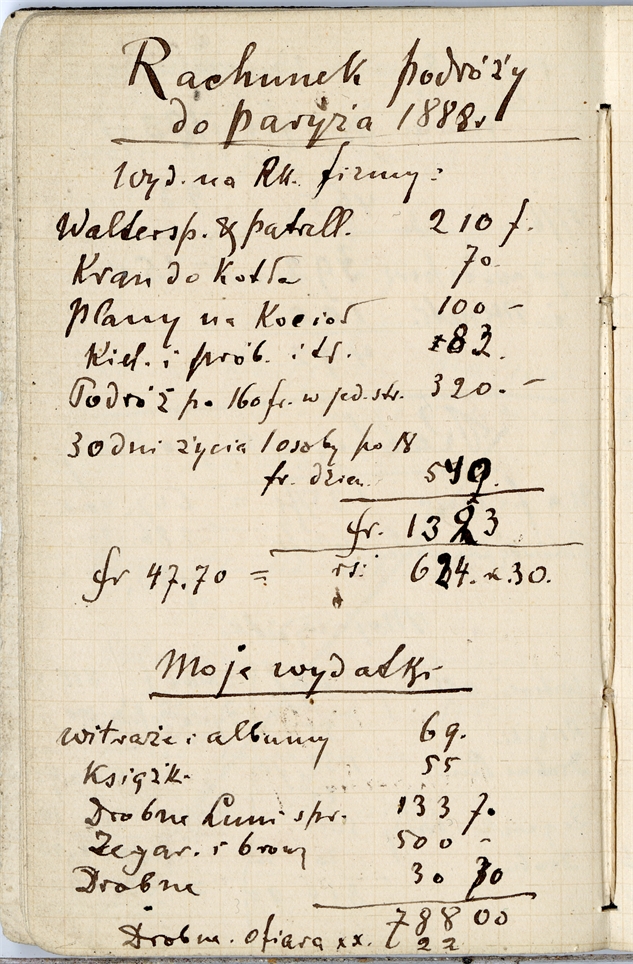 Rachunek podróży
do Paryża 1888r
Wyd. na Rk. firmy:
Waltersp. & Patrell. 210 f.
Kran do Kotła 70
Plamy na Kocioł 100 –
Kiel. i prób. i t.d. 82.
Podróż po 160 fr. w jed. str. 320. –
30 dni życia 1 osoby po 18
fr. dzien. 540.
fr. 1323
fr 47.70 = rs: 624. k. 30.
Moje wydatki
Witraże i albumy 69.
Książk. 55
Drobne spr. 133 70
Zegar. i bronz 500 –
Drobne 30 30
788 00
Drobn. ofiara xx. 22